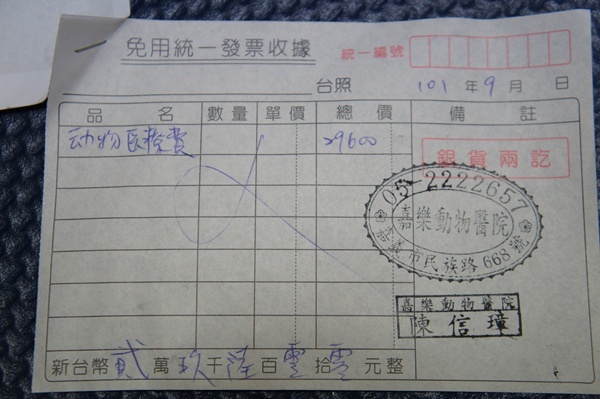 免用統一發票收據
統一編號
台照 101年9月 日
品名 數量 單價 總價 備註
动物医療費 29600
銀貨兩訖
05-2222657
嘉樂動物醫院
嘉義市民族路668號
嘉樂動物醫院
陳信璋
新台幣貳萬玖千陸百零拾零元整